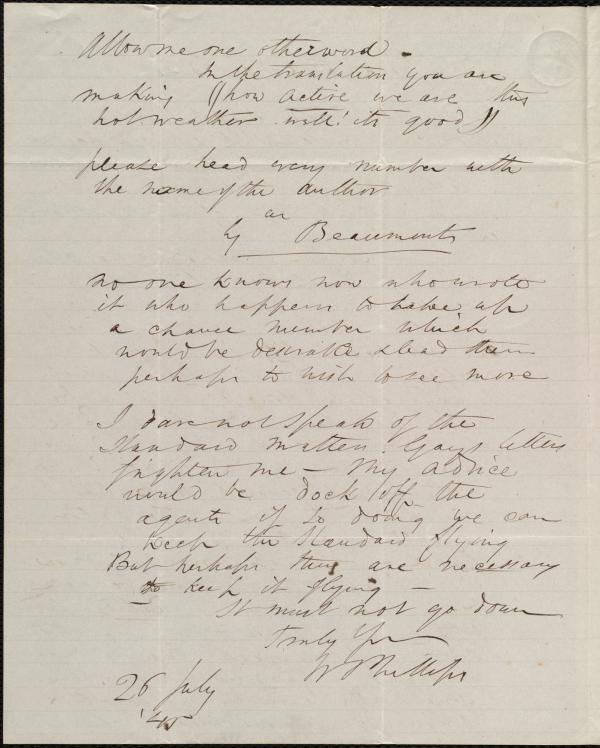 Allow me one other word.
In the translation you are
making (how active we are this
hot weather well! its good)
please head every number with
the name of the author
as
by Beaumonts
no one knows now who wrote
it who happens to take up
a chance number which
would be desirable & lead them
perhaps to wish to see more
I dare not speak of the
Standard matter. Gay's letters
frighten me — My advice
would be dock off the
agents if so doing we can
keep the Standard flying
But perhaps they are necessary
to keep it flying —
It must not go down
Truly Yrs
W Phillips
26 July
'45